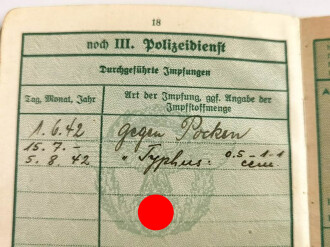 18
noch III. Polizeidienst
Durchgeführte Impfungen
Tag, Monat, Jahr
Art der Impfung, ggf. Angabe der Impfstoffmenge
1.6.42 gegen Pocken
15.7.-
5.8.42 " Typhus. 0.5-1-1 ccm